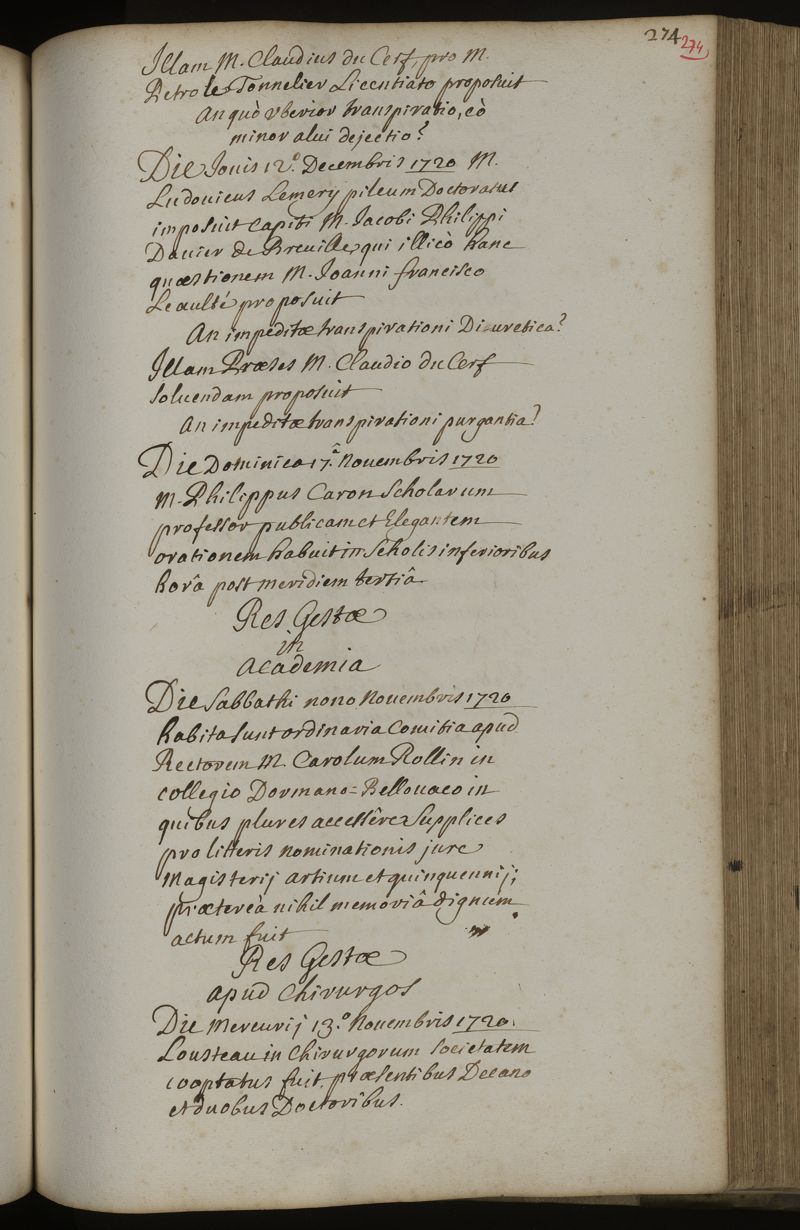 274
274
Illam M. Claudius du Cerf, pro M.
Petro le Tonnelier Licentiato proposuit
An quò vberior transpiratio, eò
minor alui dejectio?
Die Jouis 12.° Decembris 1720 M.
Ludouicus Lemery pileum Doctoratus
imposuit capiti M. Jacobi Philippi
Dauier de Breuille, qui illicò hanc
quæstionem M. Joanni francisco
Leaulté proposuit
An impeditæ transpirationi Diuretica?
Illam Præses M. Claudio du Cerf
soluendam proposuit
An impeditæ transpirationi purgantia?
Die Dominica 17.â Nouembris 1720
M. Philippus Caron Scholarum
professor publicam et Elegantem
orationem habuit in Scholis inferioribus
horâ post meridiem tertiâ
Res Gestæ
in
Academia
Die Sabbathi nono Nouembris 1720
habita sunt ordinaria Comitia apud
Rectorem M. Carolum Rollin in
collegio Dormano=Bellouaco in
quibus plures accessêre Supplices
pro litteris nominationis jure
Magisterij artium et quinquennij;
præterèa nihil memoriâ dignum
actum fuit
Res Gestæ
apud Chirurgos
Die Mercurij 13.° Nouembris 1720.
Lousteau in Chirurgorum Societatem
cooptatus fuit, præsentibus Decano
et duobus Doctoribus.